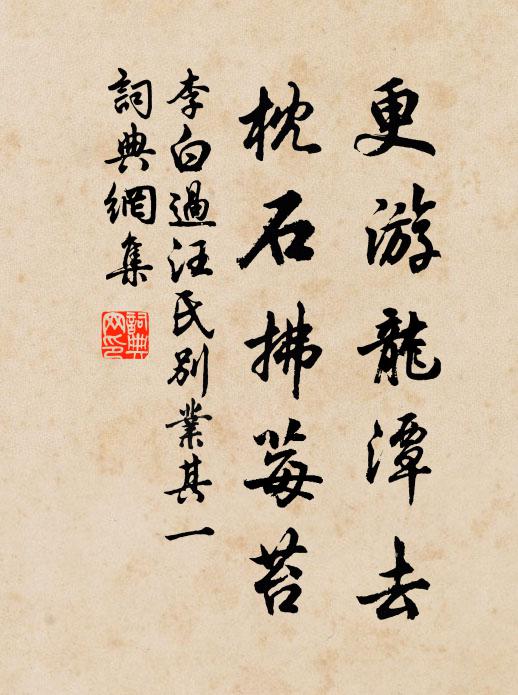 更游龍潭去
枕石拂莓苔
李白過汪氏別業其一
詞典網集
詞典
网印